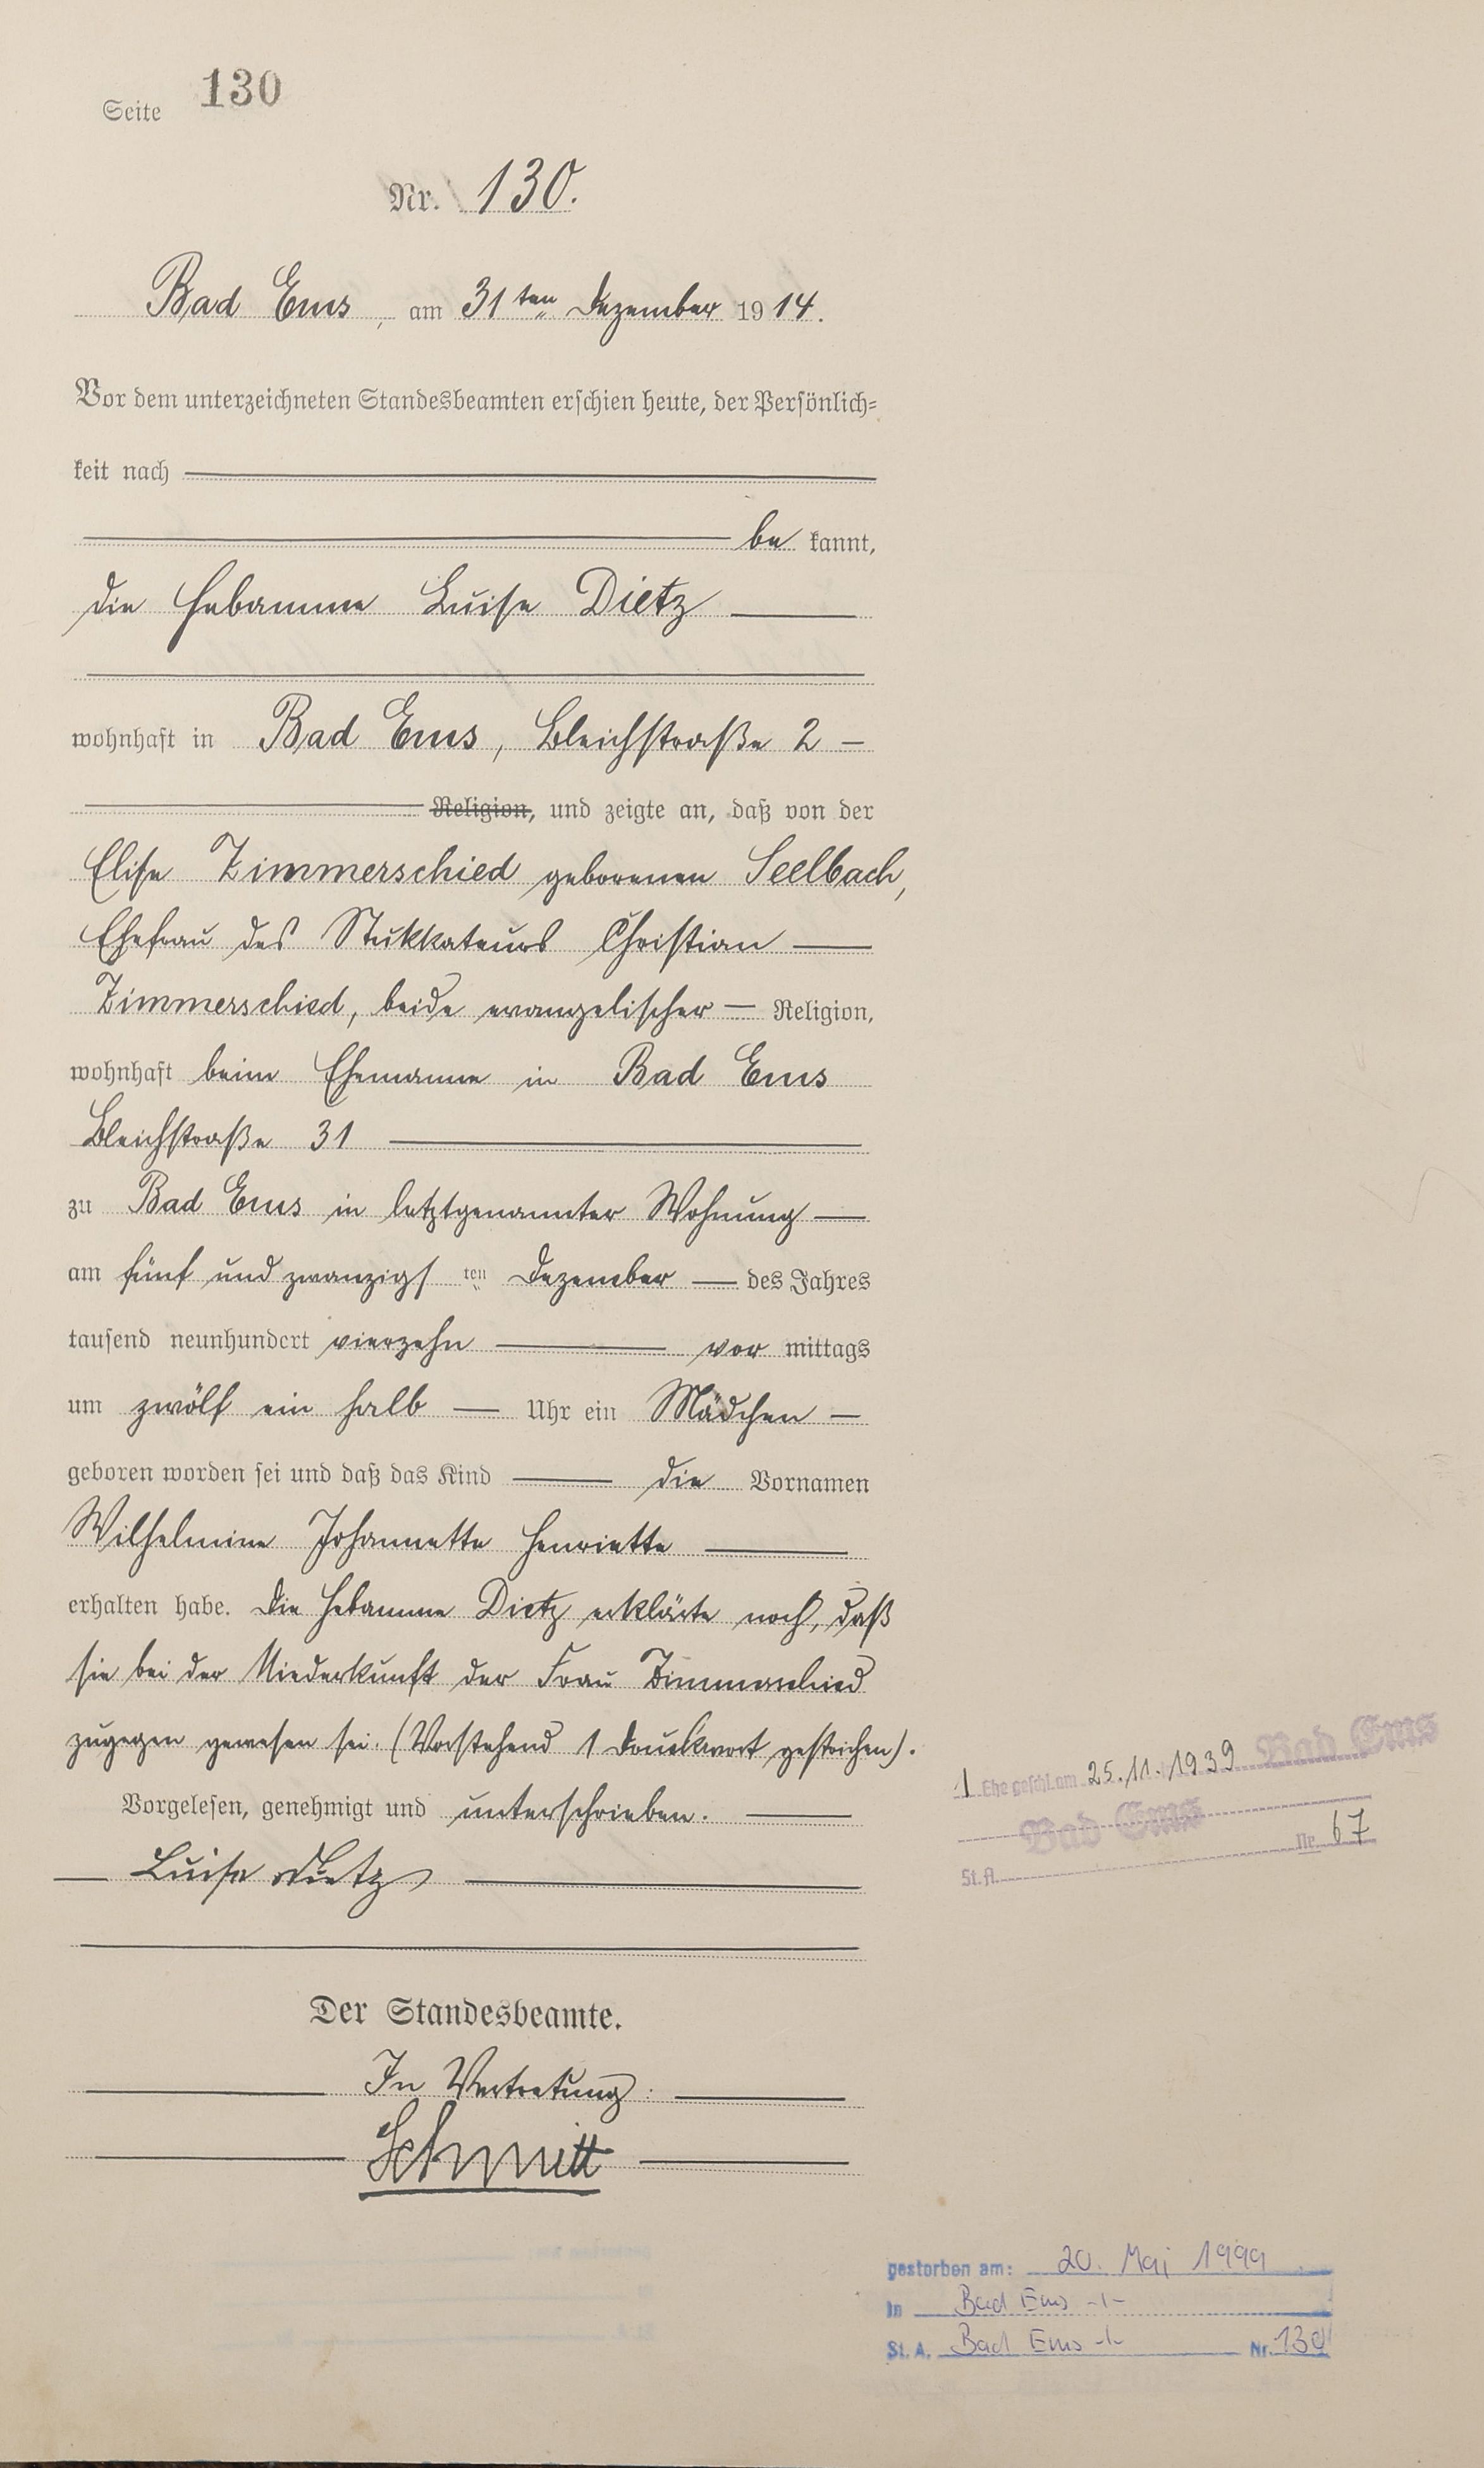 Seite 130
Nr. 130.
Bad Ems, am 31ten Dezember 1914.
Vor dem unterzeichneten Standesbeamten erschien heute, der Persönlich=
keit nach
be kannt,
die Hebamme Luise Dietz
wohnhaft in Bad Ems, Bleichstraße 2 —
Religion, und zeigte an, daß von der
Elise Zimmerschied geborenen Seelbach,
Ehefrau des Stukkateurs Christian —
Zimmerschied, beide evangelischer — Religion,
wohnhaft beim Ehemanne in Bad Ems
Bleichstraße 31
zu Bad Ems in letztgenannter Wohnung —
am fünf und zwanzigs ten Dezember — des Jahres
tausend neunhundert vierzehn — vor mittags
um zwölf ein halb — Uhr ein Mädchen —
geboren worden sei und daß das Kind — die Vornamen
Wilhelmine Johannette Henriette —
erhalten habe. Die Hebamme Dietz erklärte noch, daß
sie bei der Niederkunft der Frau Zimmerschied
zugegen gewesen sei. (Vorstehend 1 Druckwort gestrichen).
Vorgelesen, genehmigt und unterschrieben. —
— Luise Dietz —
Der Standesbeamte.
In Vertretung.
Schmitt
1 Ehe geschl. am 25.11.1939 Bad Ems
Bad Ems
St.A. Nr. 67
gestorben am: 20. Mai 1999
in Bad Ems -/-
St. A. Bad Ems -/- Nr. 130